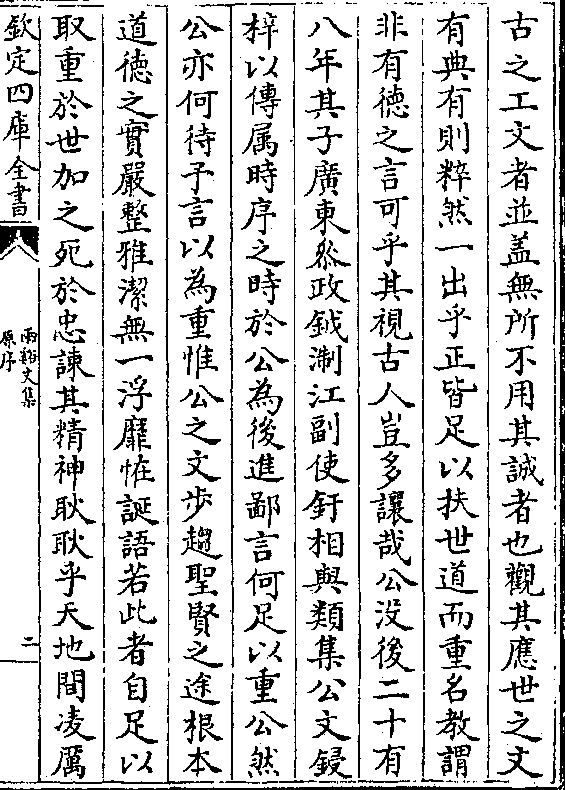 古之工文者並蓋無所不用其誠者也觀其應世之文
有典有則粹然一出乎正皆足以扶世道而重名教謂
非有德之言可乎其視古人豈多讓哉公没後二十有
八年其子廣東叅政鉞淛江副使釪相與類集公文鋟
梓以傳属時序之時於公為後進鄙言何足以重公然
公亦何待予言以為重惟公之文步趨聖賢之途根本
道德之實嚴整雅潔無一浮靡恠誕語若此者自足以
取重於世加之死於忠諫其精神耿耿乎天地間凌厲
欽定四庫全書
兩谿文集
原序
二